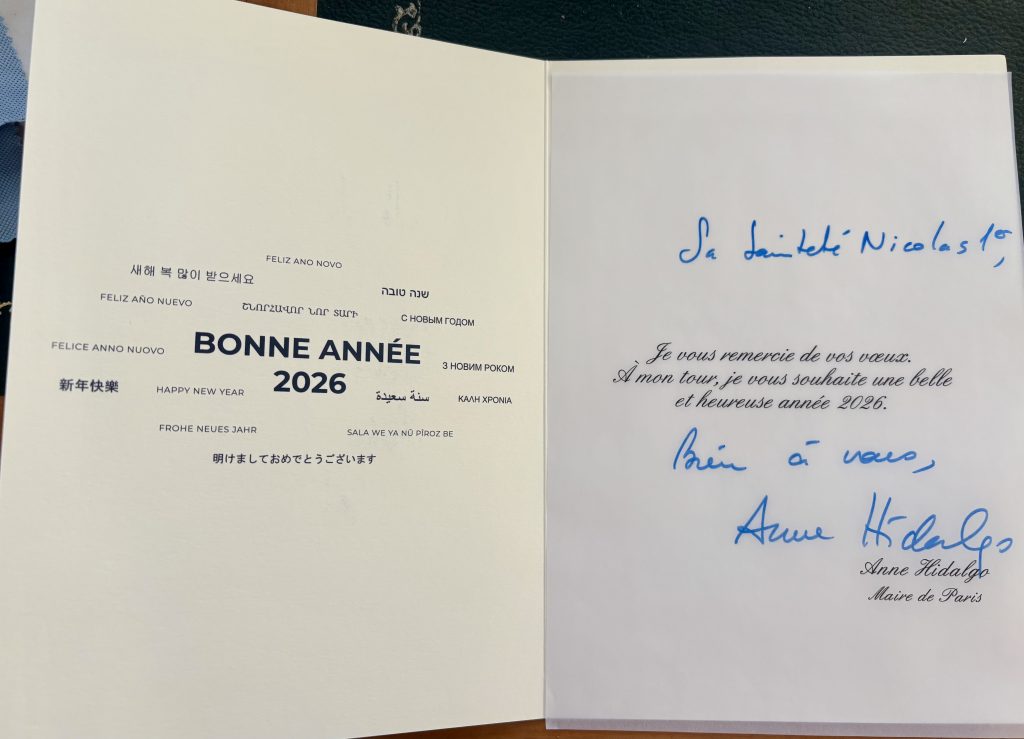 FELIZ ANO NOVO
새해 복 많이 받으세요
שנה טובה
FELIZ AÑO NUEVO
ՇՆՈՐՀԱՎՈՐ ՆՈՐ ՏԱՐԻ
С НОВЫМ ГОДОМ
BONNE ANNÉE
2026
FELICE ANNO NUOVO
З НОВИМ РОКОМ
新年快樂
HAPPY NEW YEAR
سنة سعيدة
ΚΑΛΗ ΧΡΟΝΙΑ
FROHE NEUES JAHR
SALA WE YA NÛ PÎROZ BE
明けましておめでとうございます
Sa Sainteté Nicolas 1er,
Je vous remercie de vos vœux.
À mon tour, je vous souhaite une belle
et heureuse année 2026.
Bien à vous,
Anne Hidalgo
Anne Hidalgo
Maire de Paris